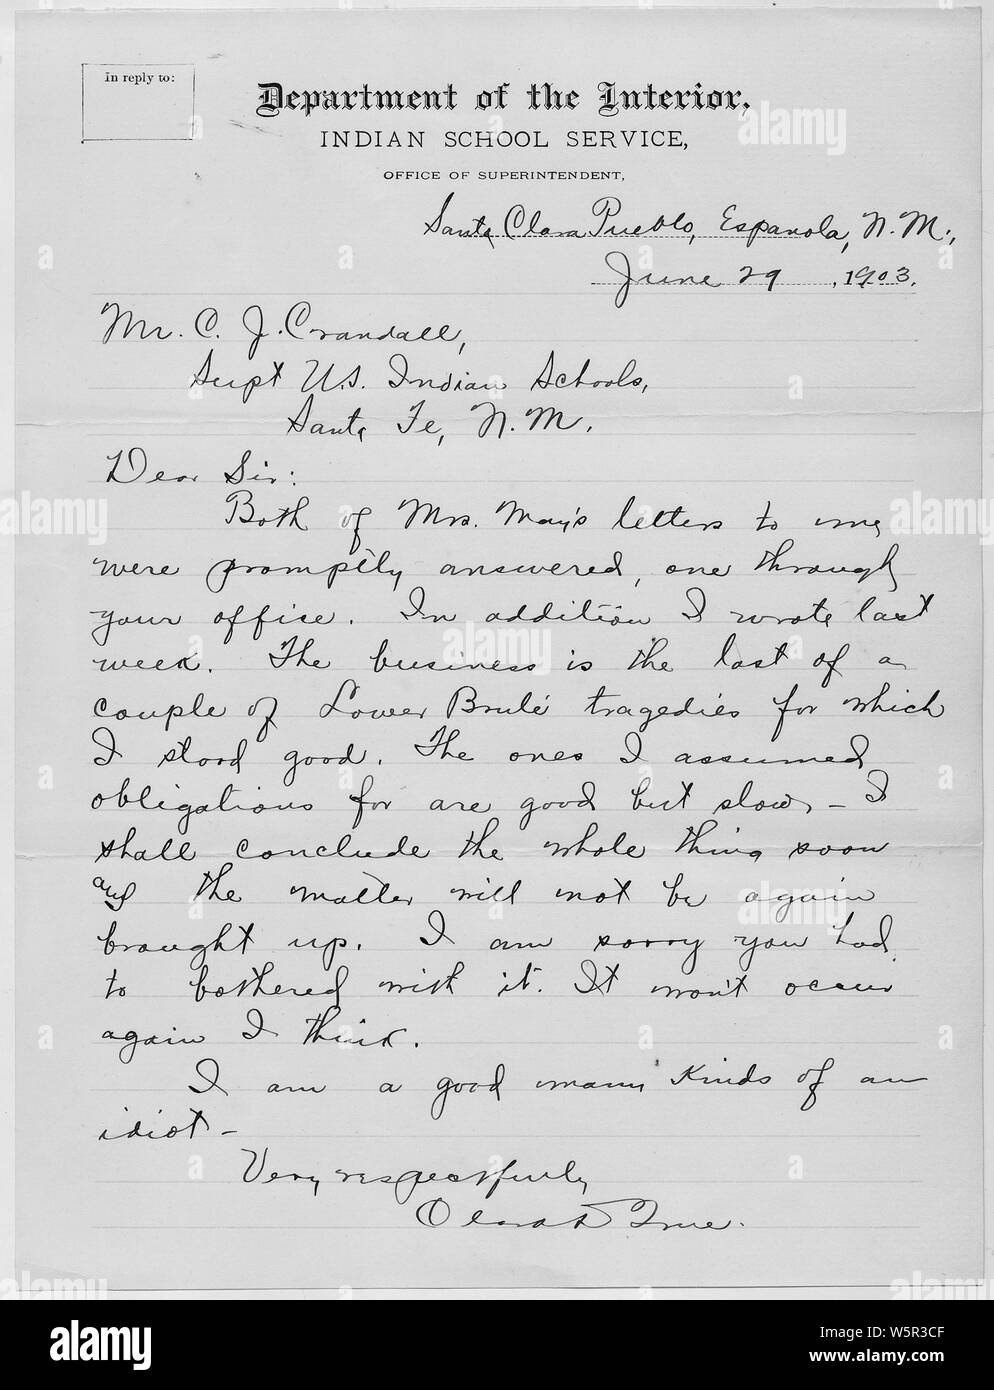 In reply to:
Department of the Interior,
INDIAN SCHOOL SERVICE,
OFFICE OF SUPERINTENDENT,
Santa Clara Pueblo, Espanola, N.M.,
June 29, 1903.
Mr. C. J. Crandall,
Supt U.S. Indian Schools,
Santa Fe, N.M.
Dear Sir:
Both of Mrs. May's letters to me
were promptly answered, one through
your office. In addition I wrote last
week. The business is the last of a
couple of Lower Brulé tragedies for which
I stood good. The ones I assumed
obligations for are good but slow – I
shall conclude the whole thing soon
and the matter will not be again
brought up. I am sorry you had
to bothered with it. It won't occur
again I think.
I am a good many kinds of an
idiot –
Very respectfully
Clara D True.
alamy
Image ID: W5R3CF
www.alamy.com